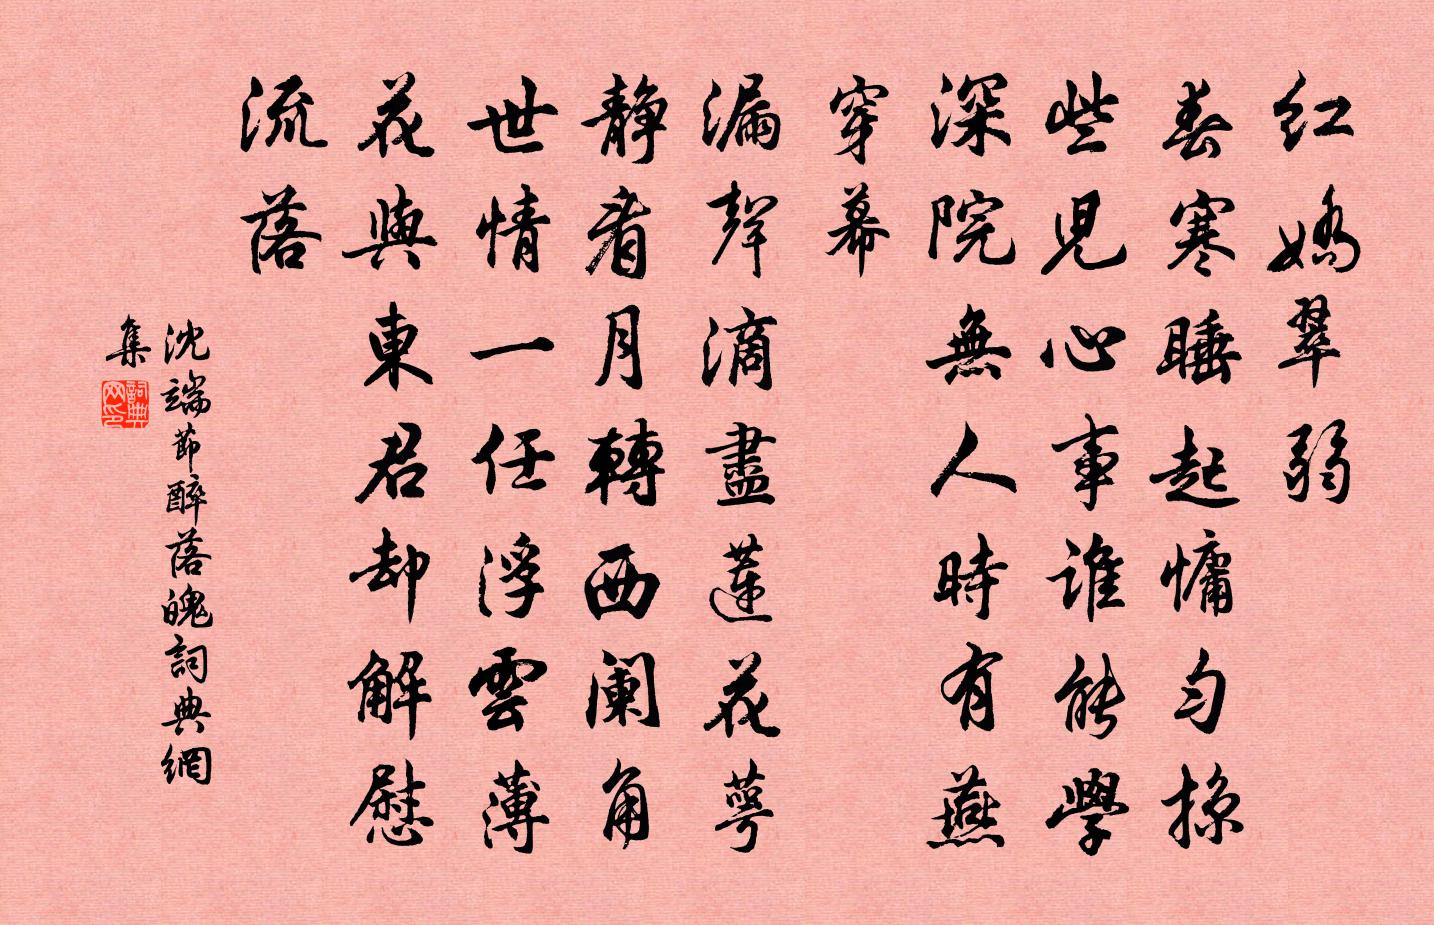 红嬌翠弱
春寒睡起慵勻掠
些兒心事誰能學
深院無人時有燕
穿幕
漏聲滴盡蓮花萼
靜看月轉西闌角
世情一任浮雲薄
花與東君却解慰
流落
沈端節醉落魄詞典網
集
詞典
网印